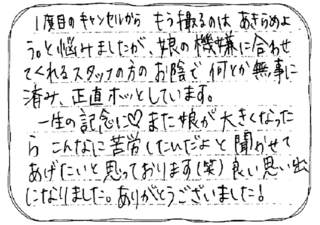 1度目のキャンセルから もう撮るのは あきらめよ
う。と悩みましたが、娘の機嫌に合わせ
てくれるスタッフの方のお陰で 何とか無事に
済み、正直ホッとしています。
一生の記念に♡また娘が大きくなった
ら こんなに苦労したんだよと聞かせて
あげたいと思っております(笑)良い思い出
になりました。ありがとうございました!